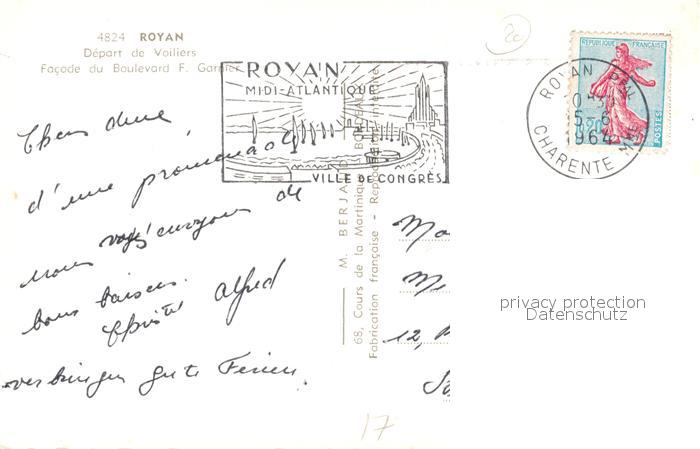 4824 ROYAN
Départ de Voiliers
Façade du Boulevard F. Garnier
ROYAN
MIDI-ATLANTIQUE
VILLE DE CONGRÈS
2c
REPUBLIQUE FRANÇAISE
0,20
POSTES
ROYAN
5-6
1964
CHARENTE
M. BERJAUD BORDEAUX
68, Cours de la Martinique
Fabrication française - Reproduction interdite
d'une promenade
nous vous envoyons de
bons baisers.
Alfred
verbringen gute Ferien.
12,
17
privacy protection
Datenschutz